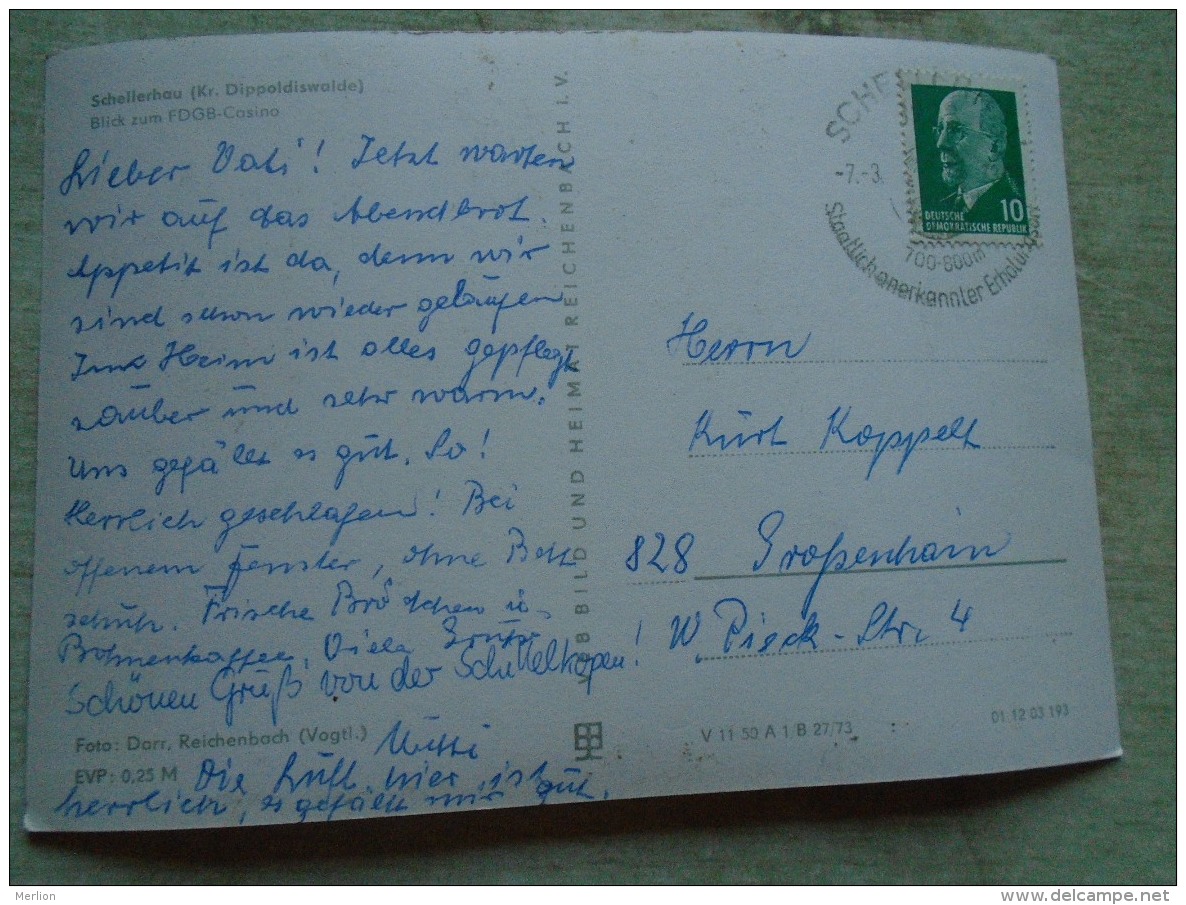 Schellerhau (Kr. Dippoldiswalde)
Blick zum FDGB-Casino
Lieber Vati! Jetzt warten
wir auf das Abendbrot.
Appetit ist da, denn wir
sind schon wieder gelaufen
Im Heim ist alles gepflegt
sauber und sehr warm.
Uns gefällt es gut. So!
Herrlich geschlafen! Bei
offenem Fenster, ohne Bett
schuh. Frische Brötchen u.
Bohnenkaffee. Viele Grüße
Schönen Gruß von der
Mutti
Die Luft hier ist
herrlich, es gefällt mir gut.
Foto: Darr, Reichenbach (Vogtl.)
EVP: 0,25 M
VEB BILD UND HEIMAT REICHENBACH I. V.
V 11 50 A 1 B 27/73
01 12 03 193
-7.-3.
700-800m
Staatlich anerkannter
DEUTSCHE
DEMOKRATISCHE REPUBLIK
10
Herrn
Kurt Koppelt
828 Großenhain
W. Pieck-Str. 4
Merlion
www.delcampe.net